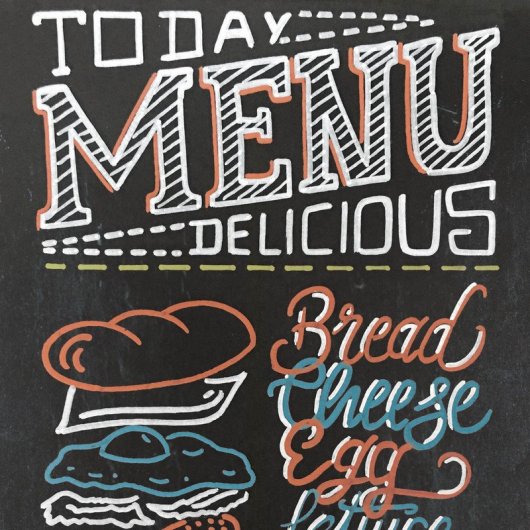 TODAY
MENU
DELICIOUS
Bread
Cheese
Egg
Lettuce